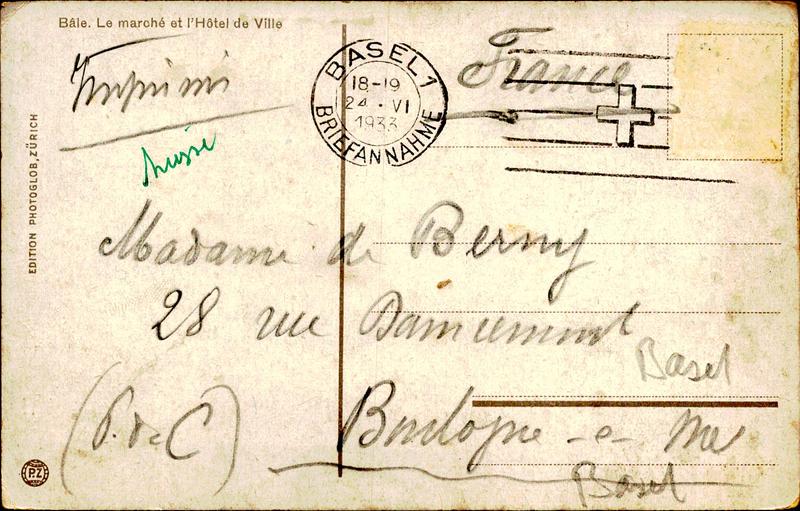 Bâle. Le marché et l'Hôtel de Ville
Imprimé
France
BASEL 1
18-19
24 · VI
1933
BRIEFANNAHME
Suisse
EDITION PHOTOGLOB, ZÜRICH
Madame de Berny
28 rue
Basel
(P. de C) Boulogne - s - Mer
Basel
PZ